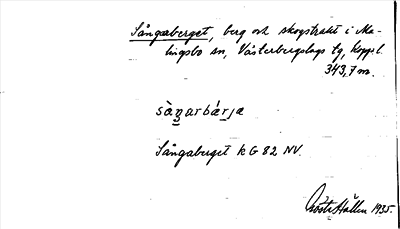 Sångarberget, berg och skogstrakt i Ma-
lingsbo sn, Västerbergslags tg, Koppl.
343,7 m.
sàŋarbærjə
Sångaberget kG 82 NV.
Gösta Hallén 1935.